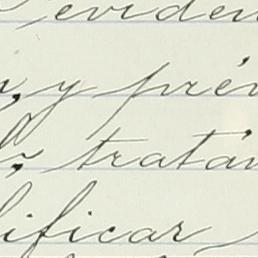 eviden
y prév
tratán
ificar